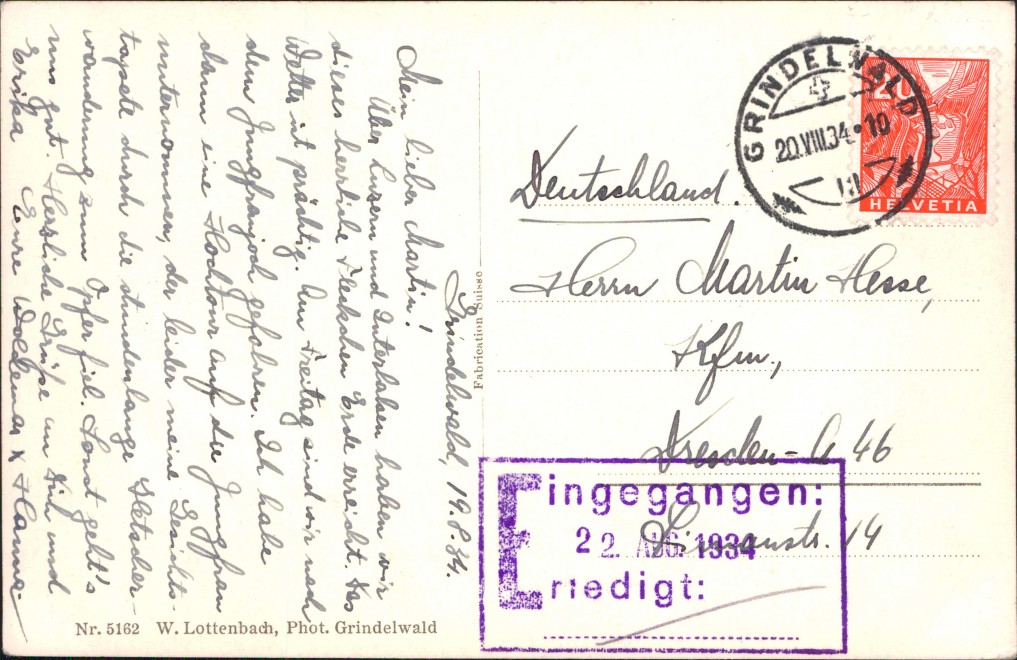 Grindelwald, 19.8.34.
Mein lieber Martin!
Über Luzern und Interlaken haben wir
dieses herrliche Fleckchen Erde erreicht. Das
Wetter ist prächtig. Am Freitag sind wir nach
dem Jungfraujoch gefahren. Ich habe
dann eine Hochtour auf die Jungfrau
unternommen, der leider meine Gesichts-
tapete durch die stundenlange Gletscher-
wanderung zum Opfer fiel. Sonst geht's
uns gut. Herzliche Grüße an Dich und
Erika Eure Woldemar & Hanna.
Fabrication Suisse
Nr. 5162 W. Lottenbach, Phot. Grindelwald
GRINDELWALD
20.VIII.34·10
20
HELVETIA
Deutschland.
Herrn Martin Hesse,
Kfm.,
Dresden-A 46
14
Eingegangen:
22. AUG. 1934
Erledigt: